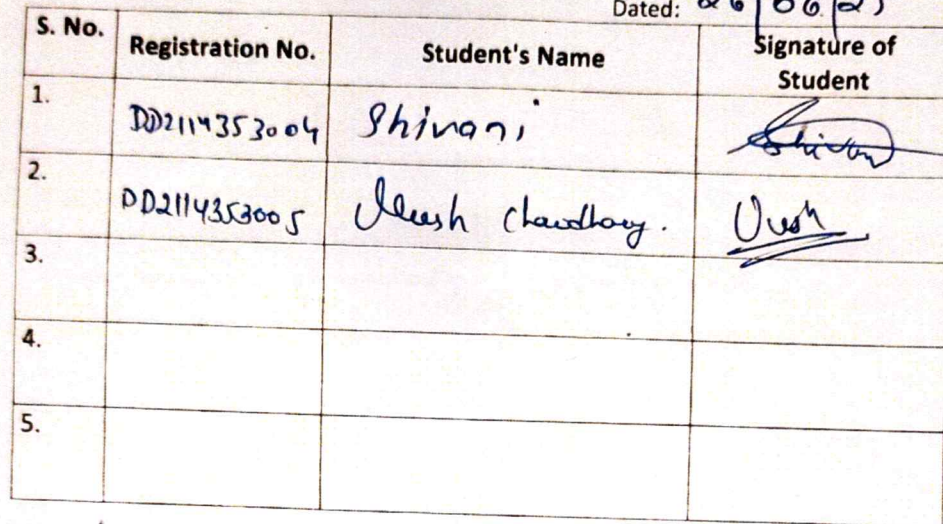 Dated: 26/06/23
S. No. Registration No. Student's Name Signature of Student
1. DD2114353004 Shivani Shivani
2. DD2114353005 Chaudhary.
3.
4.
5.